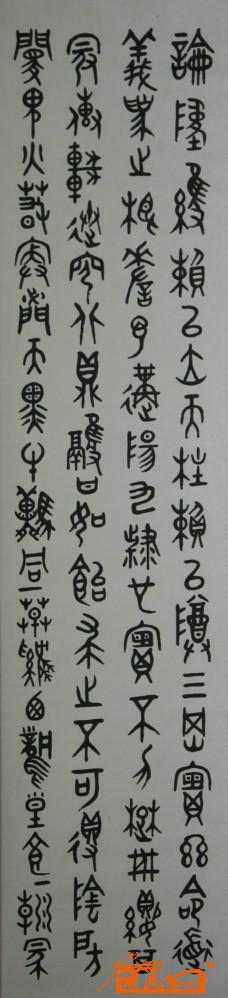 論地維賴以立天柱賴以尊三綱實係命道
義為之根嗟予遘陽九隸也實不力楚囚纓其
冠傳車送窮北鼎鑊甘如飴求之不可得陰房
闃鬼火春院閟天黑牛驥同一皂雞棲鳳凰食一朝蒙